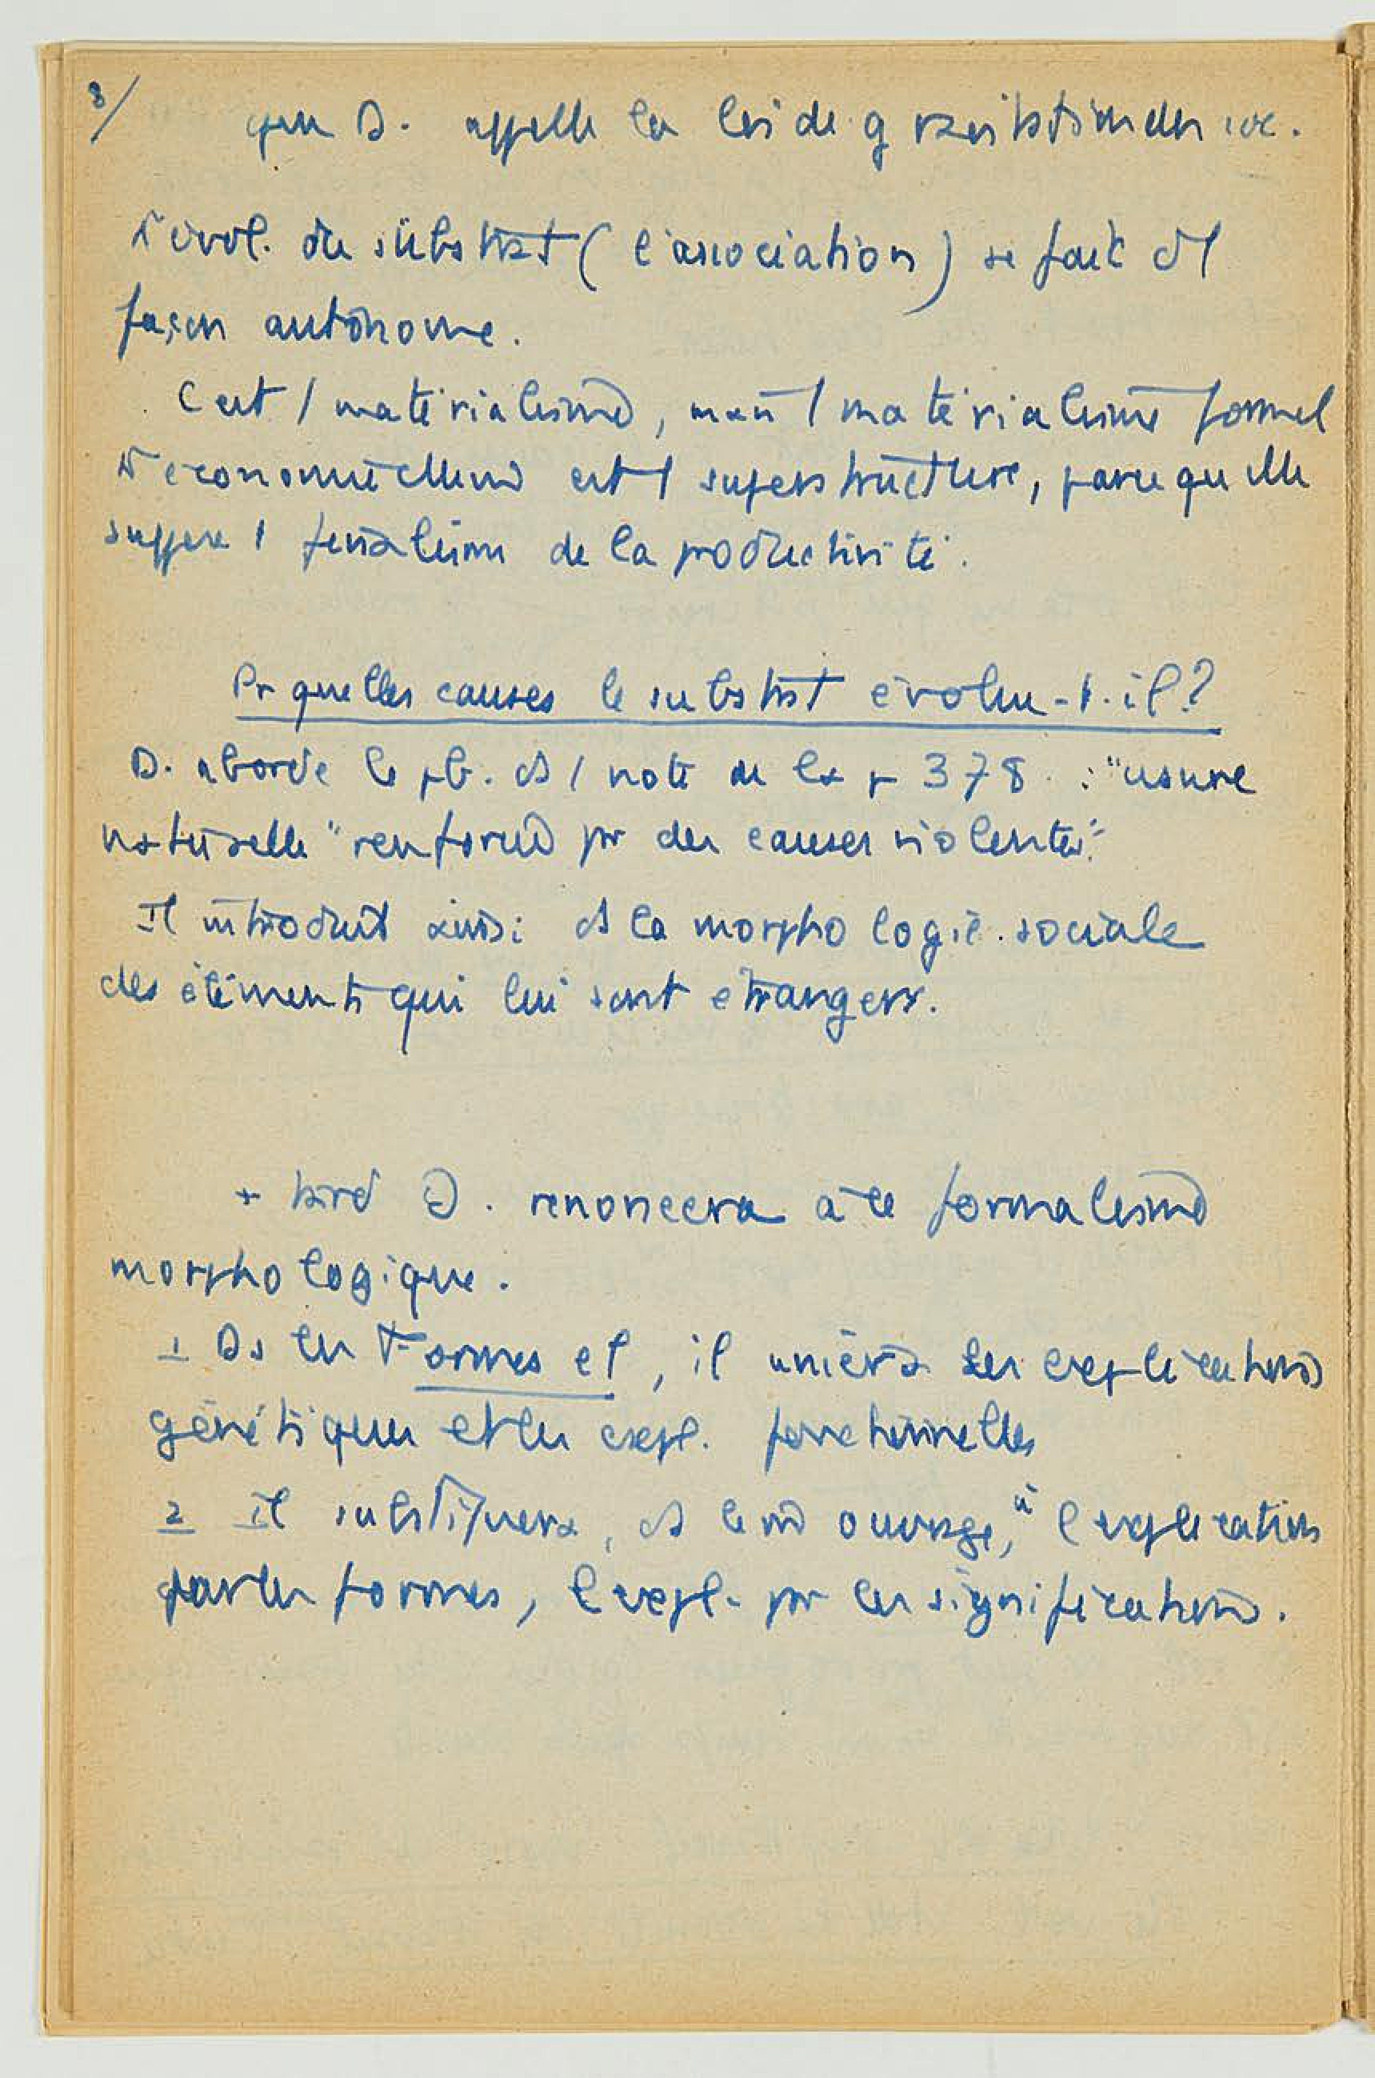 8/
que D. appelle la loi de gravitation du m. soc.
L'évol. du substrat ( l'association ) se fait d/
façon autonome.
C'est / matérialisme, mais / matérialisme formel
L'économie est / superstructure, parce qu'elle
suppose / finalisme de la productivité.
Pr quelles causes le substrat évolue-t-il ?
D. aborde le pb. ds / note de la p 378 : "usure
naturelle" renforcée pr des causes violentes".
Il introduit ainsi ds la morphologie sociale
des éléments qui lui sont étrangers.
+ tard D. renoncera à ce formalisme
morphologique.
1 Ds les Formes el, il unira les explications
génétiques et les expl. fonctionnelles
2 Il substituera, ds le m ouvrage, à l'explication
par les formes, l'expl. pr les significations.